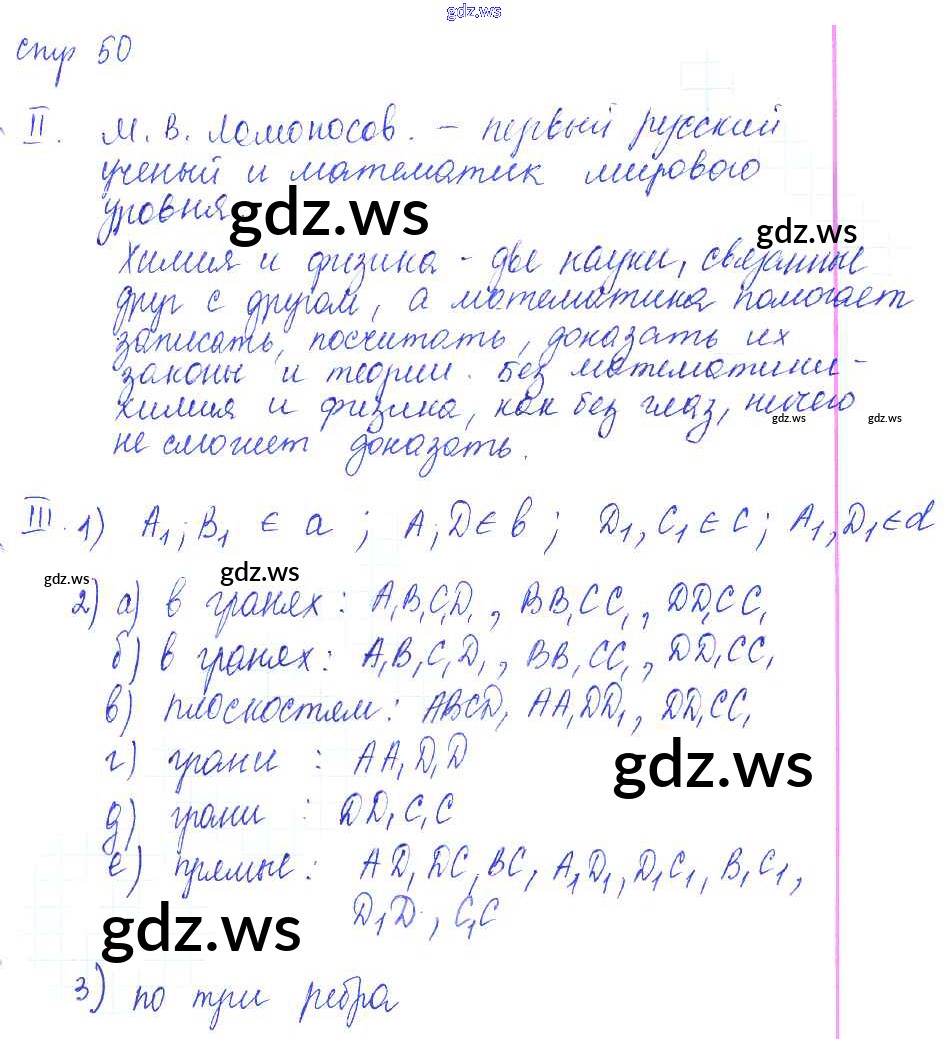 gdz.ws
стр 50
II. М. В. Ломоносов. - первый русский
ученый и математик мирового
уровня
gdz.ws
gdz.ws
Химия и физика - две науки, связанные
друг с другом, а математика помогает
записать, посчитать, доказать их
законы и теории. Без математики -
химия и физика, как без глаз, ничего
gdz.ws gdz.ws
не сможет доказать.
III. 1) A₁; B₁ ∈ a ; A; D ∈ b ; D₁, C₁ ∈ c ; A₁, D₁ ∈ d
gdz.ws gdz.ws
2) а) в гранях : A₁B₁C₁D₁ , BB₁CC₁ , DD₁CC₁
б) в гранях : A₁B₁C₁D₁ , BB₁CC₁ , DD₁CC₁
в) плоскостям : ABCD, AA₁DD₁ , DD₁CC₁
г) грани : AA₁D₁D
gdz.ws
д) грани : DD₁C₁C
е) прямые : AD, DC, BC, A₁D₁, D₁C₁, B₁C₁,
D₁D , C₁C
gdz.ws
3) по три ребра